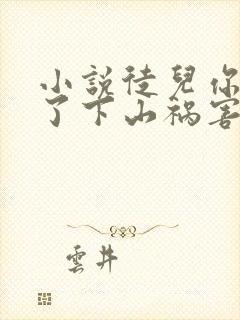 小説徒兒你
了下山禍害
雲井